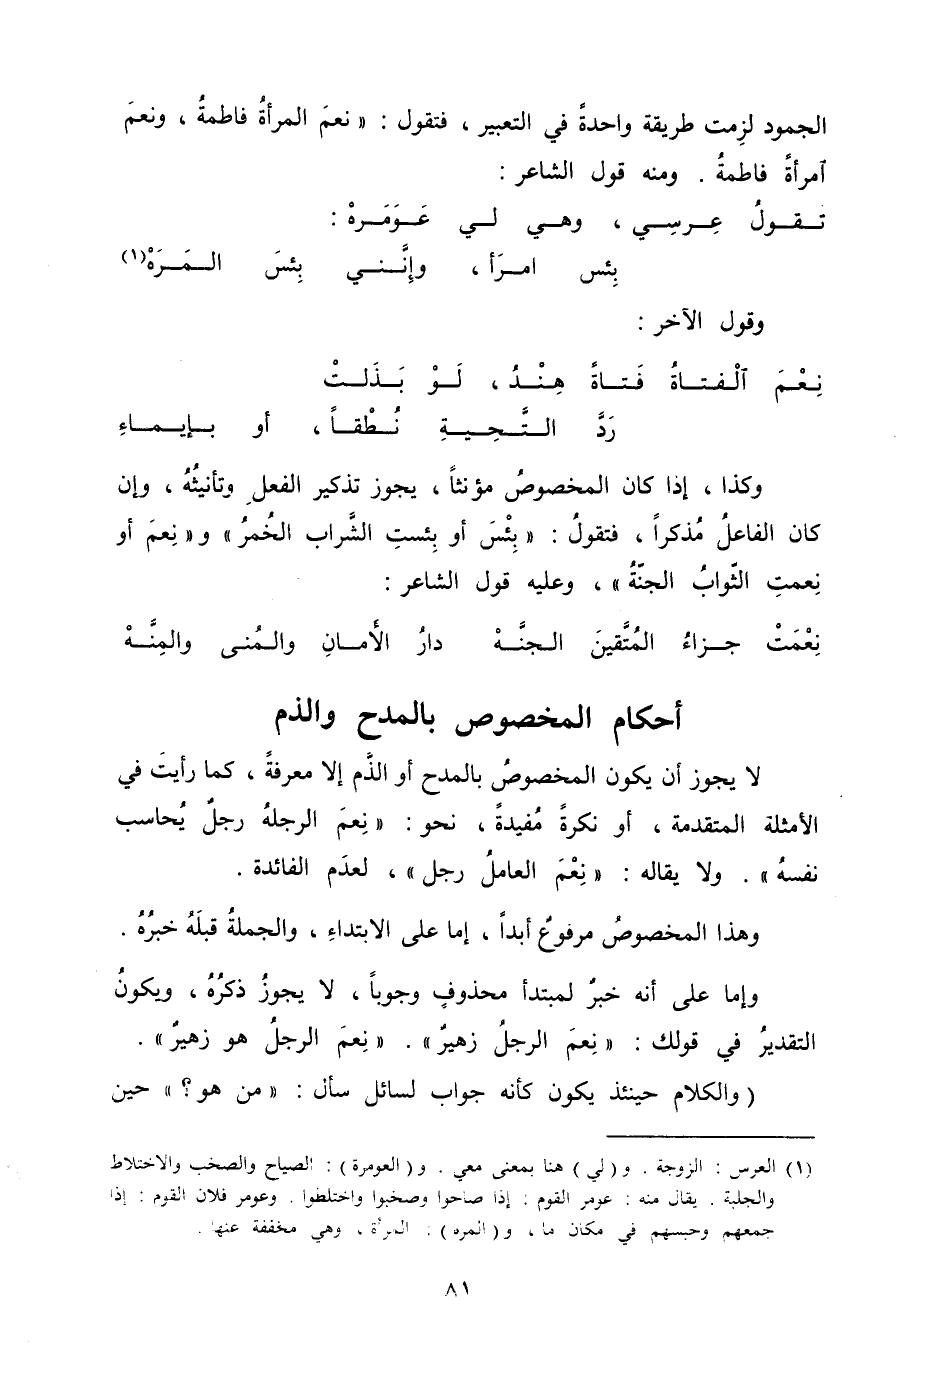 الجمود لزِمت طريقة واحدةً في التعبير ، فتقول : « نعمَ المرأةُ فاطمةُ ، ونعمَ
ٱمرأةً فاطمةُ . ومنه قول الشاعر :
تـقـولُ عِـرسِـي ، وهـي لـي عَـوْمَـرهْ :
بِئس امـرَأ ، وإِنَّـنـي بِئسَ الـمَـرَهْ(١)
وقول الآخر :
نِعْـمَ ٱلْفتـاةُ فَتـاةً هِنْـدُ ، لَـوْ بَـذَلـتْ
رَدَّ التَّـحِيـةِ نُـطْقـاً ، أو بـإيـمـاءِ
وكذا ، إذا كان المخصوصُ مؤنثاً ، يجوز تذكير الفعلِ وتأنيثُهُ ، وإن
كان الفاعلُ مُذكراً ، فتقولُ : « بِئْسَ أو بِئستِ الشَّراب الخُمرُ » و« نِعمَ أو
نِعمتِ الثّوابُ الجنّةُ » ، وعليه قول الشاعر :
نِعْمَتْ جـزاءُ المُتَّقينَ الـجنَّـهْ دارُ الأَمـانِ والـمُنـى والمِنَّـهْ
أحكام المخصوص بالمدح والذم
لا يجوز أن يكون المخصوصُ بالمدح أو الذَّم إلا معرفةً ، كما رأيتَ في
الأمثلة المتقدمة ، أو نكرةً مُفيدةً ، نحو : « نِعمَ الرجلهُ رجلٌ يُحاسب
نفسهُ » . ولا يقاله : « نِعْمَ العاملُ رجل » ، لعدَم الفائدة .
وهذا المخصوصُ مرفوعٌ أبداً ، إما على الابتداءِ ، والجملةُ قبلَهُ خبرُهُ .
وإما على أنه خبرٌ لمبتدأ محذوفٍ وجوباً ، لا يجوزُ ذكرُهُ ، ويكونُ
التقديرُ في قولك : « نِعمَ الرجلُ زهيرٌ » . « نِعمَ الرجلُ هو زهيرٌ » .
( والكلام حينئذ يكون كأنه جواب لسائل سأل : « من هو ؟ » حين
(١) العرس : الزوجة . و( لي ) هنا بمعنى معي . و( العومرة ) : الصياح والصخب والاختلاط
والجلبة . يقال منه : عومر القوم : إذا صاحوا وصخبوا واختلطوا . وعومر فلان القوم : إذا
جمعهم وحبسهم في مكان ما ، و( المره ) : المرأة ، وهي مخففة عنها .
٨١